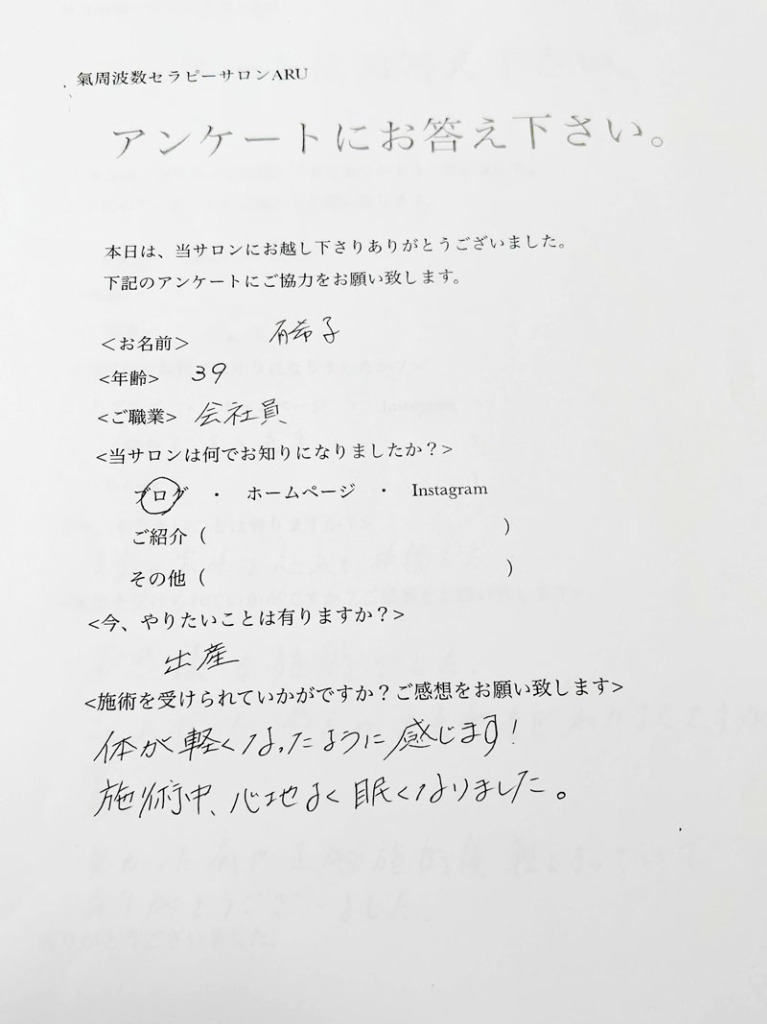 氣周波数セラピーサロンARU
アンケートにお答え下さい。
本日は、当サロンにお越し下さりありがとうございました。
下記のアンケートにご協力をお願い致します。
<お名前> 有希子
<年齢> 39
<ご職業> 会社員
<当サロンは何でお知りになりましたか？>
ブログ ・ ホームページ ・ Instagram
ご紹介（ ）
その他（ ）
<今、やりたいことは有りますか？>
出産
<施術を受けられていかがですか？ご感想をお願い致します>
体が軽くなったように感じます！
施術中、心地よく眠くなりました。